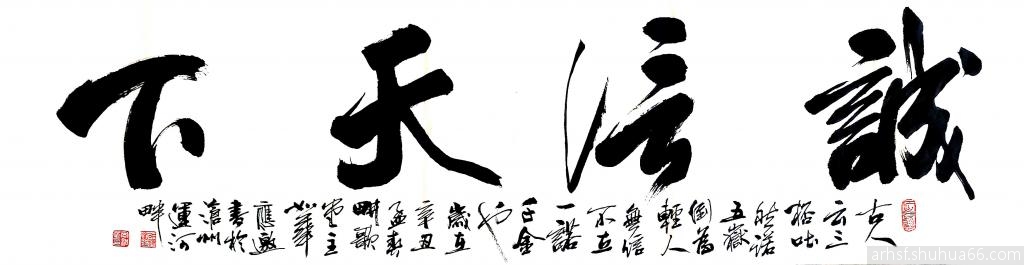 誠信天下
古人
云三
杯吐
然諾
五嶽
倒為
輕人
無信
不立
一諾
千金
也
歲在
辛丑
孟春
畊歌
堂主
華
應邀
書於
滄州
運河
畔
arhsf.shuhua66.com